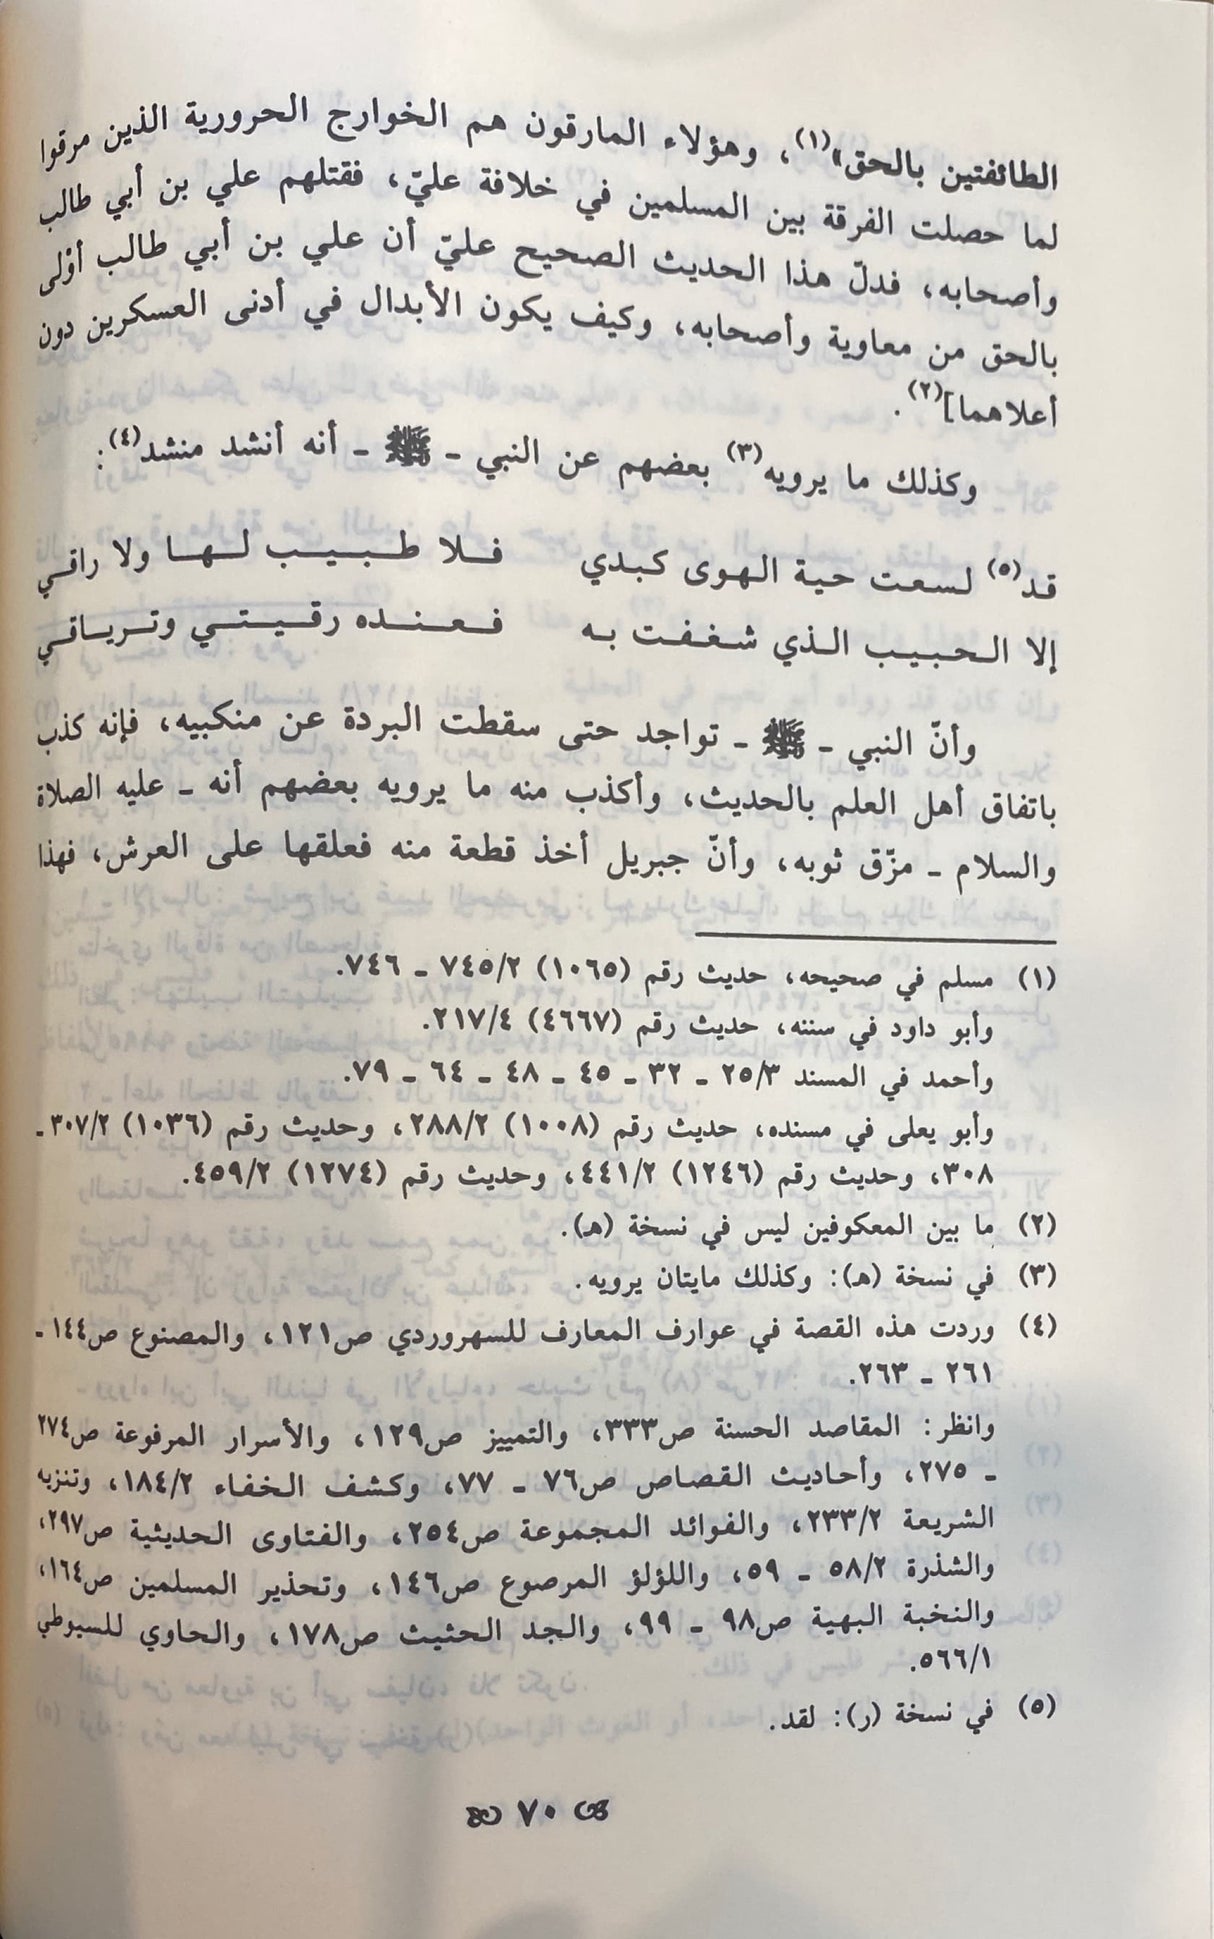 الطائفتين بالحق»(١)، وهؤلاء المارقون هم الخوارج الحرورية الذين مرقوا
لما حصلت الفرقة بين المسلمين في خلافة عليّ، فقتلهم علي بن أبي طالب
وأصحابه، فدلّ هذا الحديث الصحيح عليّ أن علي بن أبي طالب أوْلى
بالحق من معاوية وأصحابه، وكيف يكون الأبدال في أدنى العسكرين دون
أعلاهما](٢).
وكذلك ما يرويه(٣) بعضهم عن النبي - ﷺ - أنه أنشد منشد(٤):
قد(٥) لسعت حية الهوى كبدي فلا طبيب لها ولا راقي
إلا الحبيب الذي شغفت به فعنده رقيتي وترياقي
وأنّ النبي - ﷺ - تواجد حتى سقطت البردة عن منكبيه، فإنه كذب
باتفاق أهل العلم بالحديث، وأكذب منه ما يرويه بعضهم أنه - عليه الصلاة
والسلام - مزّق ثوبه، وأنّ جبريل أخذ قطعة منه فعلقها على العرش، فهذا
(١) مسلم في صحيحه، حديث رقم (١٠٦٥) ٧٤٥/٢ - ٧٤٦.
وأبو داود في سننه، حديث رقم (٤٦٦٧) ٢١٧/٤.
وأحمد في المسند ٢٥/٣ - ٣٢ - ٤٥ - ٤٨ - ٦٤ - ٧٩.
وأبو يعلى في مسنده، حديث رقم (١٠٠٨) ٢٨٨/٢، وحديث رقم (١٠٣٦) ٣٠٧/٢ -
٣٠٨، وحديث رقم (١٢٤٦) ٤٤١/٢، وحديث رقم (١٢٧٤) ٤٥٩/٢.
(٢) ما بين المعكوفين ليس في نسخة (هـ).
(٣) في نسخة (هـ): وكذلك مايتان يرويه.
(٤) وردت هذه القصة في عوارف المعارف للسهروردي ص١٢١، والمصنوع ص١٤٤ -
٢٦١ - ٢٦٣.
وانظر: المقاصد الحسنة ص٣٣٣، والتمييز ص١٢٩، والأسرار المرفوعة ص٢٧٤
- ٢٧٥، وأحاديث القصاص ص٧٦ - ٧٧، وكشف الخفاء ١٨٤/٢، وتنزيه
الشريعة ٢٣٣/٢، والفوائد المجموعة ص٢٥٤، والفتاوى الحديثية ص٢٩٧،
والشذرة ٥٨/٢ - ٥٩، واللؤلؤ المرصوع ص١٤٦، وتحذير المسلمين ص١٦٤،
والنخبة البهية ص٩٨ - ٩٩، والجد الحثيث ص١٧٨، والحاوي للسيوطي
٥٦٦/١.
(٥) في نسخة (ر): لقد.
٧٠